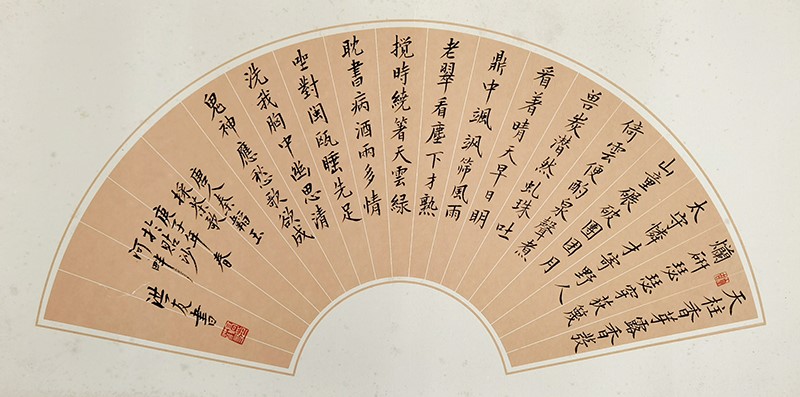 天柱香芽露香發
爛研瑟瑟穿荻篾
太守憐才寄野人
山童碾破團團月
倚雲便酌泉聲煮
兽炭潜然虬珠吐
看着晴天早日明
鼎中颯颯篩風雨
老翠看塵下才熟
搅時繞箸天雲緑
耽書病酒兩多情
坐對閩甌睡先足
洗我胸中幽思清
鬼神應愁歌欲成
唐人秦韜玉
採茶歌
庚子年春
於貼沙
河畔
洪亮書